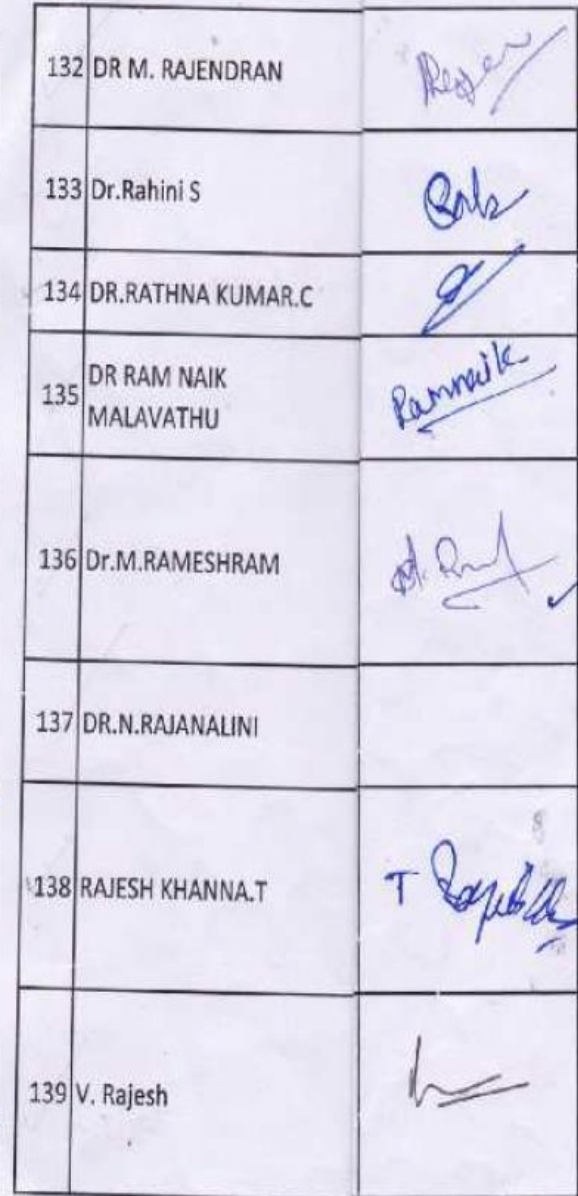 132 DR M. RAJENDRAN
133 Dr.Rahini S
134 DR.RATHNA KUMAR.C
135 DR RAM NAIK
MALAVATHU
Ramnaik
136 Dr.M.RAMESHRAM
137 DR.N.RAJANALINI
138 RAJESH KHANNA.T
139 V. Rajesh